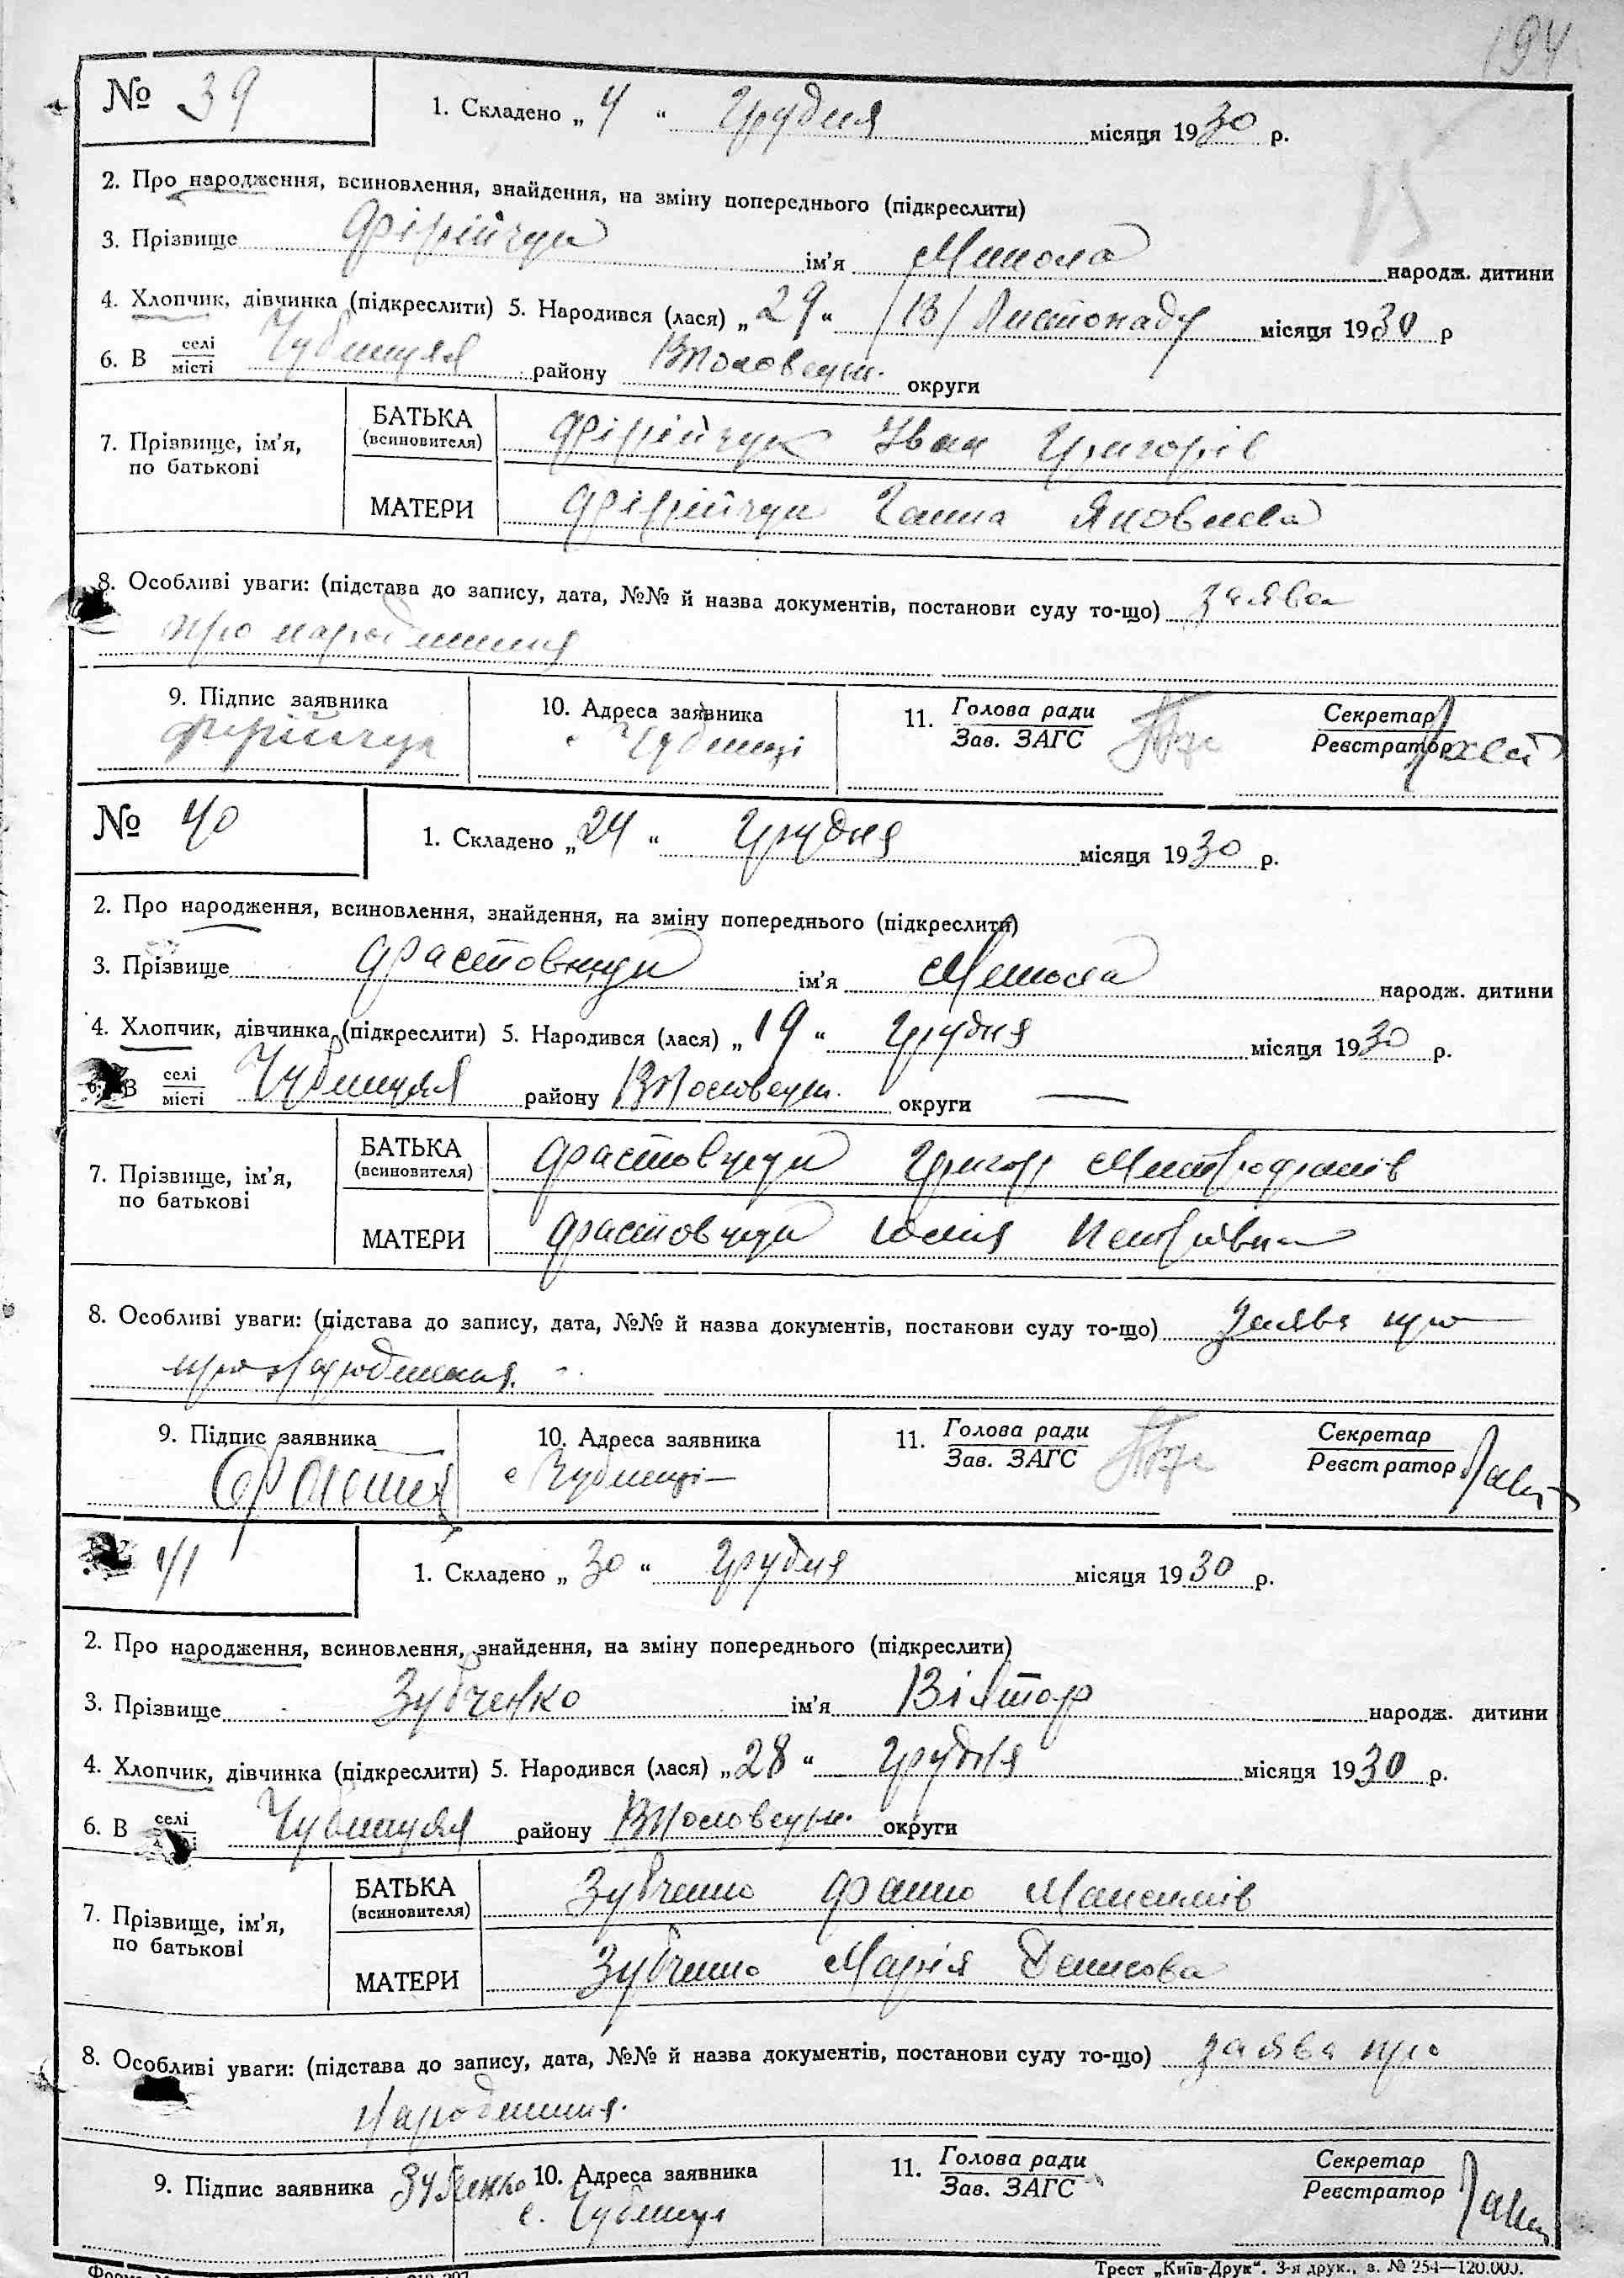 194
№ 39
1. Складено „ 4 “ Грудня місяця 1930 р.
2. Про народження, всиновлення, знайдення, на зміну попереднього (підкреслити)
3. Прізвище Фірійчук ім'я Микола народж. дитини
4. Хлопчик, дівчинка (підкреслити) 5. Народився (лася) „ 29 “ Листопаду місяця 1930 р
6. В селі місті району округи
7. Прізвище, ім'я, по батькові
БАТЬКА (всиновителя) Фірійчук Іван Григорів
МАТЕРИ Фірійчук Ганна Яковлева
8. Особливі уваги: (підстава до запису, дата, №№ й назва документів, постанови суду то-що) заява
про народження
9. Підпис заявника Фірійчук
10. Адреса заявника
11. Голова ради Зав. ЗАГС
Секретар Реєстратор
№ 40
1. Складено „ 24 “ Грудня місяця 1930 р.
2. Про народження, всиновлення, знайдення, на зміну попереднього (підкреслити)
3. Прізвище Фастовщук ім'я Микола народж. дитини
4. Хлопчик, дівчинка (підкреслити) 5. Народився (лася) „ 19 “ Грудня місяця 1930 р.
6. В селі місті району округи —
7. Прізвище, ім'я, по батькові
БАТЬКА (всиновителя) Григор Митрофанів
МАТЕРИ Юлія Петрівна
8. Особливі уваги: (підстава до запису, дата, №№ й назва документів, постанови суду то-що) заява про
про народження.
9. Підпис заявника
10. Адреса заявника
11. Голова ради Зав. ЗАГС
Секретар Реєстратор
41
1. Складено „ 30 “ Грудня місяця 1930 р.
2. Про народження, всиновлення, знайдення, на зміну попереднього (підкреслити)
3. Прізвище Зубченко ім'я Віктор народж. дитини
4. Хлопчик, дівчинка (підкреслити) 5. Народився (лася) „ 28 “ Грудня місяця 1930 р.
6. В селі району округи
7. Прізвище, ім'я, по батькові
БАТЬКА (всиновителя) Зубченко Максимів
МАТЕРИ Зубченко Марія Денисова
8. Особливі уваги: (підстава до запису, дата, №№ й назва документів, постанови суду то-що) заява про
народження.
9. Підпис заявника Зубченко
10. Адреса заявника
11. Голова ради Зав. ЗАГС
Секретар Реєстратор
Трест „Київ-Друк“. 3-я друк., з. № 254—120.000.